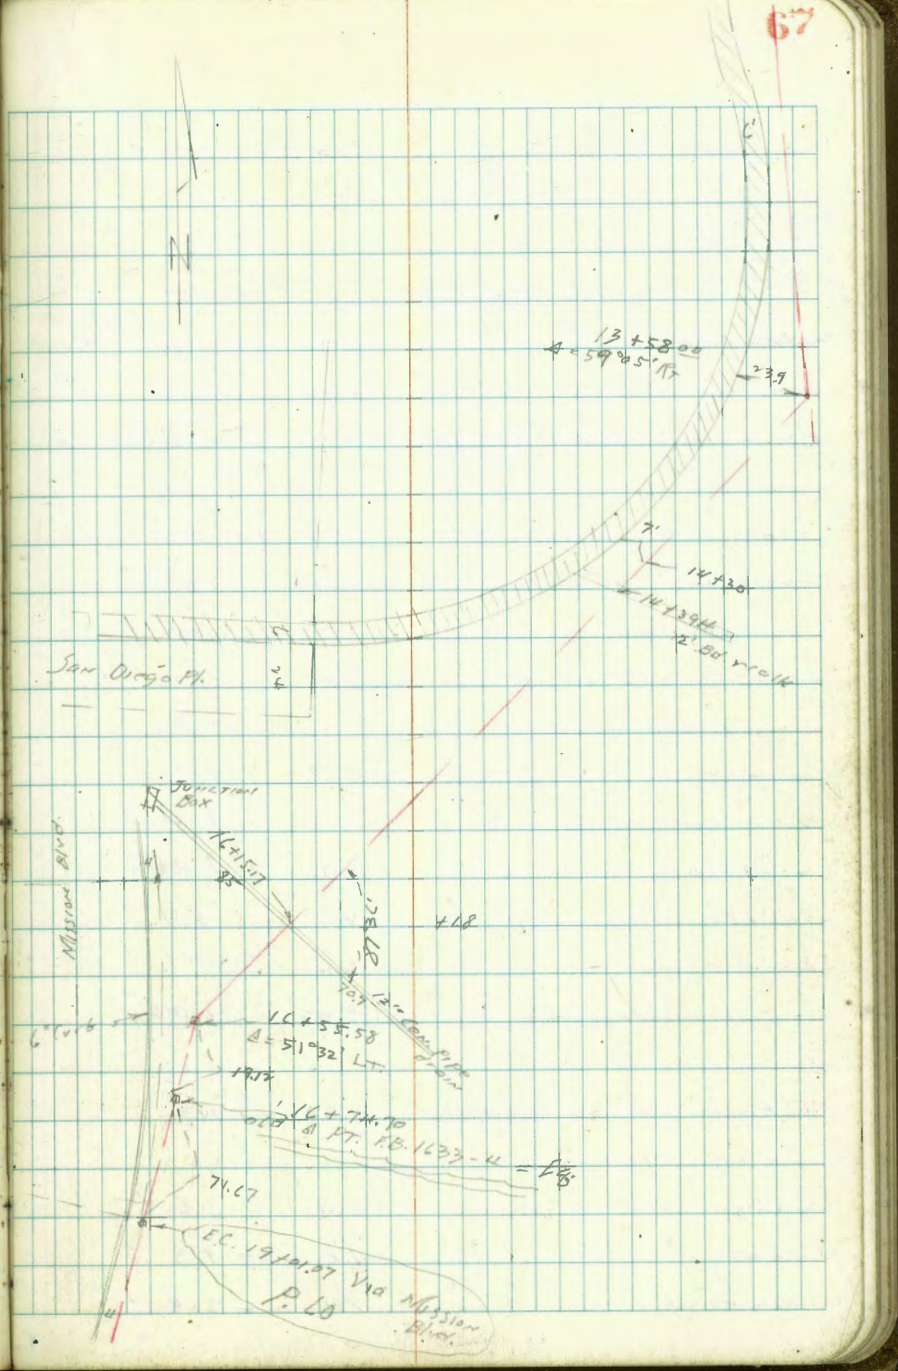 67
N
13+58.00
Δ=59°05' Rt
23.9
7'
14+30
14+39.4
2' Bd walk
San Diego Pl.
26
Junction
Box
Mission Blvd.
16+15.17
85
+18
70.9
12" Con. Pipe
drain
6" Curb
16+55.58
Δ=51°32' LT.
19.12
16+74.70
old Δ PT. F.B. 1633-4
71.67
E.C. 19+01.07 Via Mission
Blvd.
P. 60